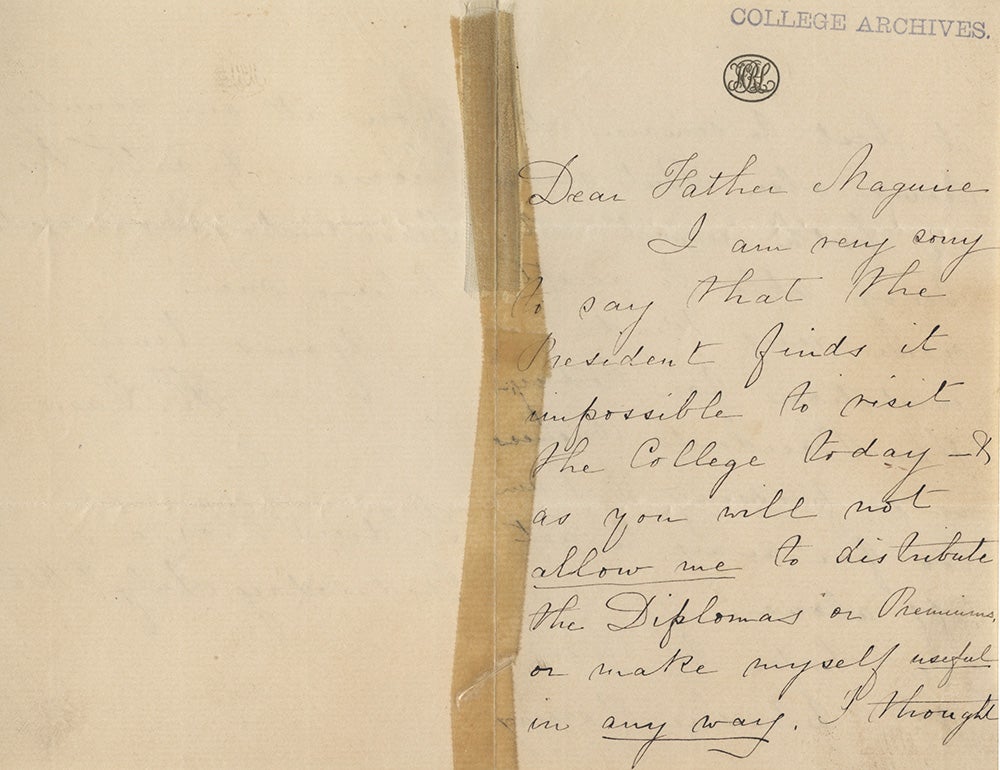 COLLEGE ARCHIVES.
Dear Father Maguire
I am very sorry
to say that the
President finds it
impossible to visit
the College today – &
as you will not
allow me to distribute
the Diplomas or Premiums,
or make myself useful
in any way. I thought